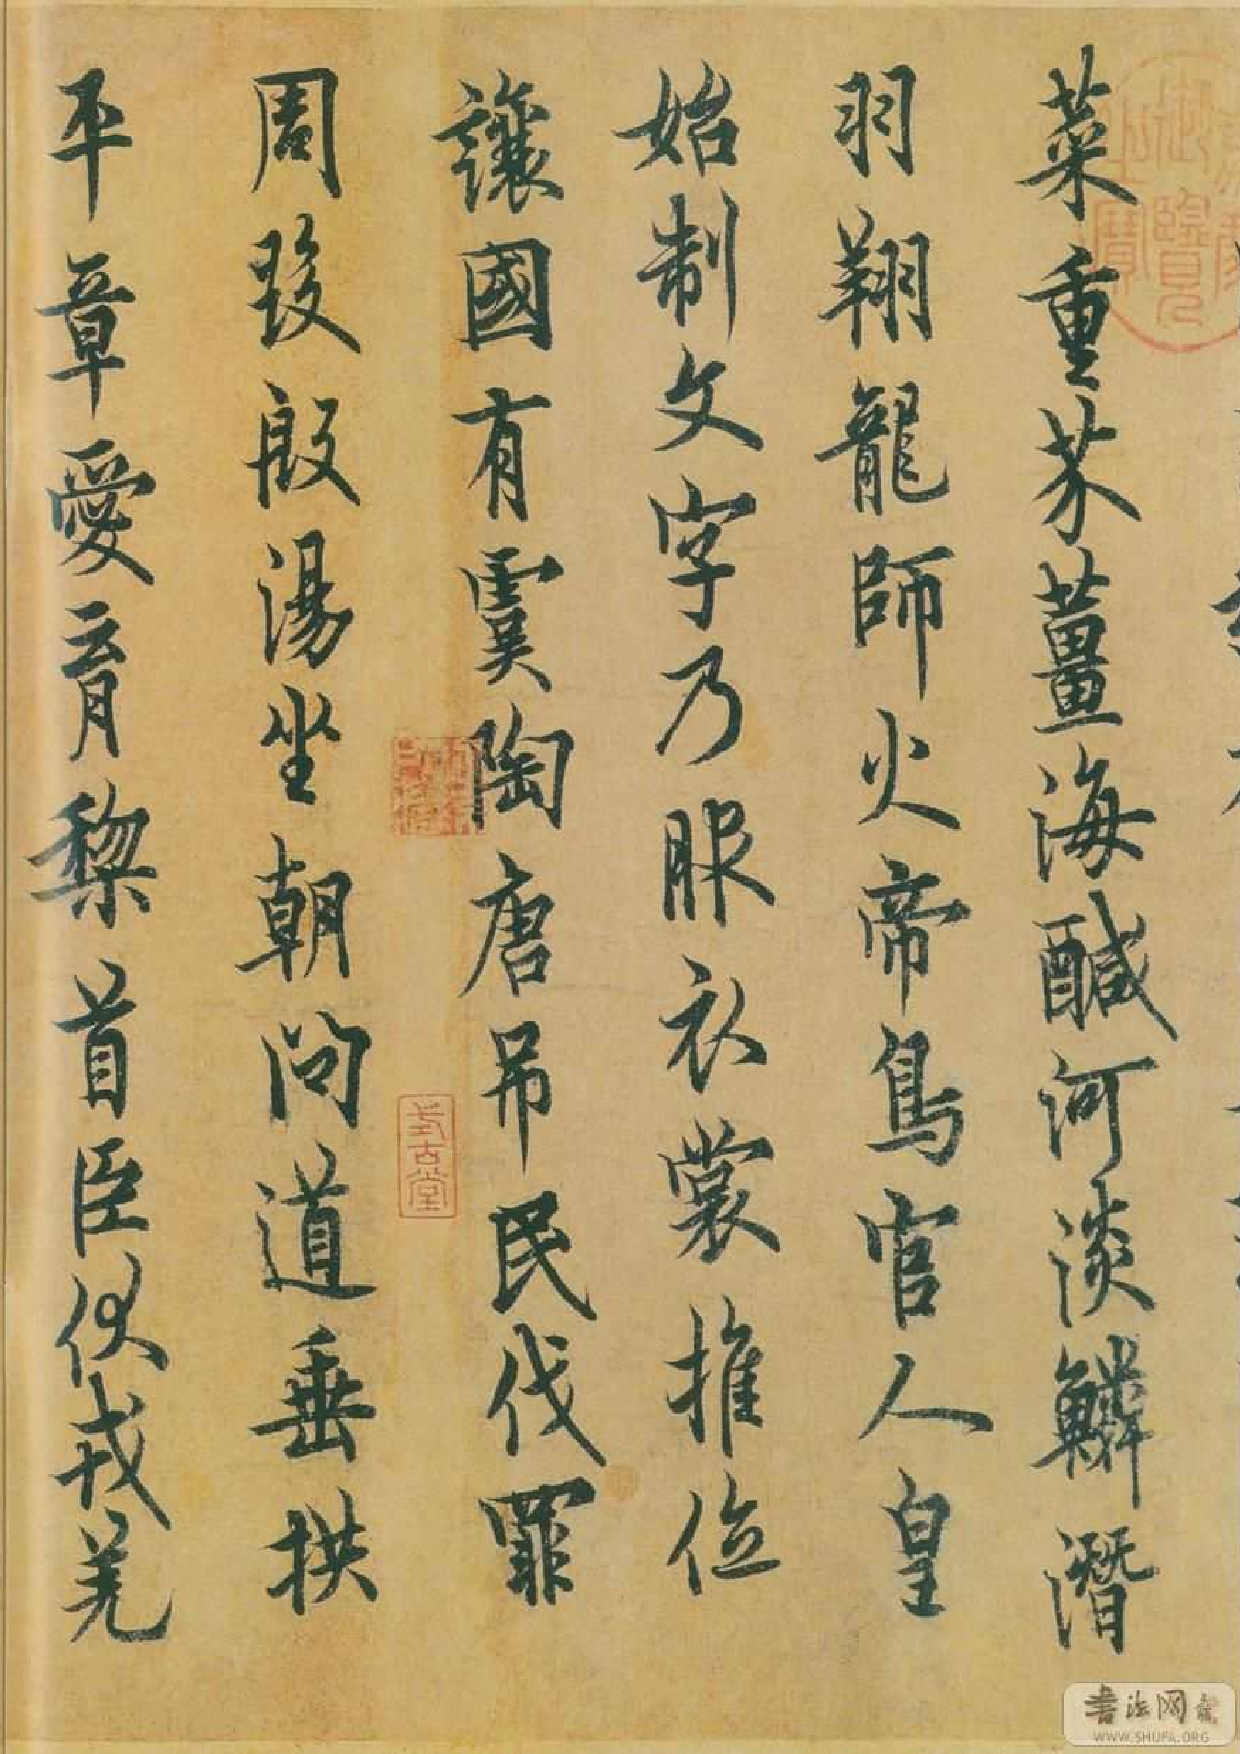 菜重芥薑海醎河淡鱗潛
羽翔龍師火帝鳥官人皇
始制文字乃服衣裳推位
讓國有虞陶唐吊民伐罪
周發殷湯坐朝問道垂拱
平章愛育黎首臣伏戎羌
式古堂
书法网
WWW.SHUFA.ORG